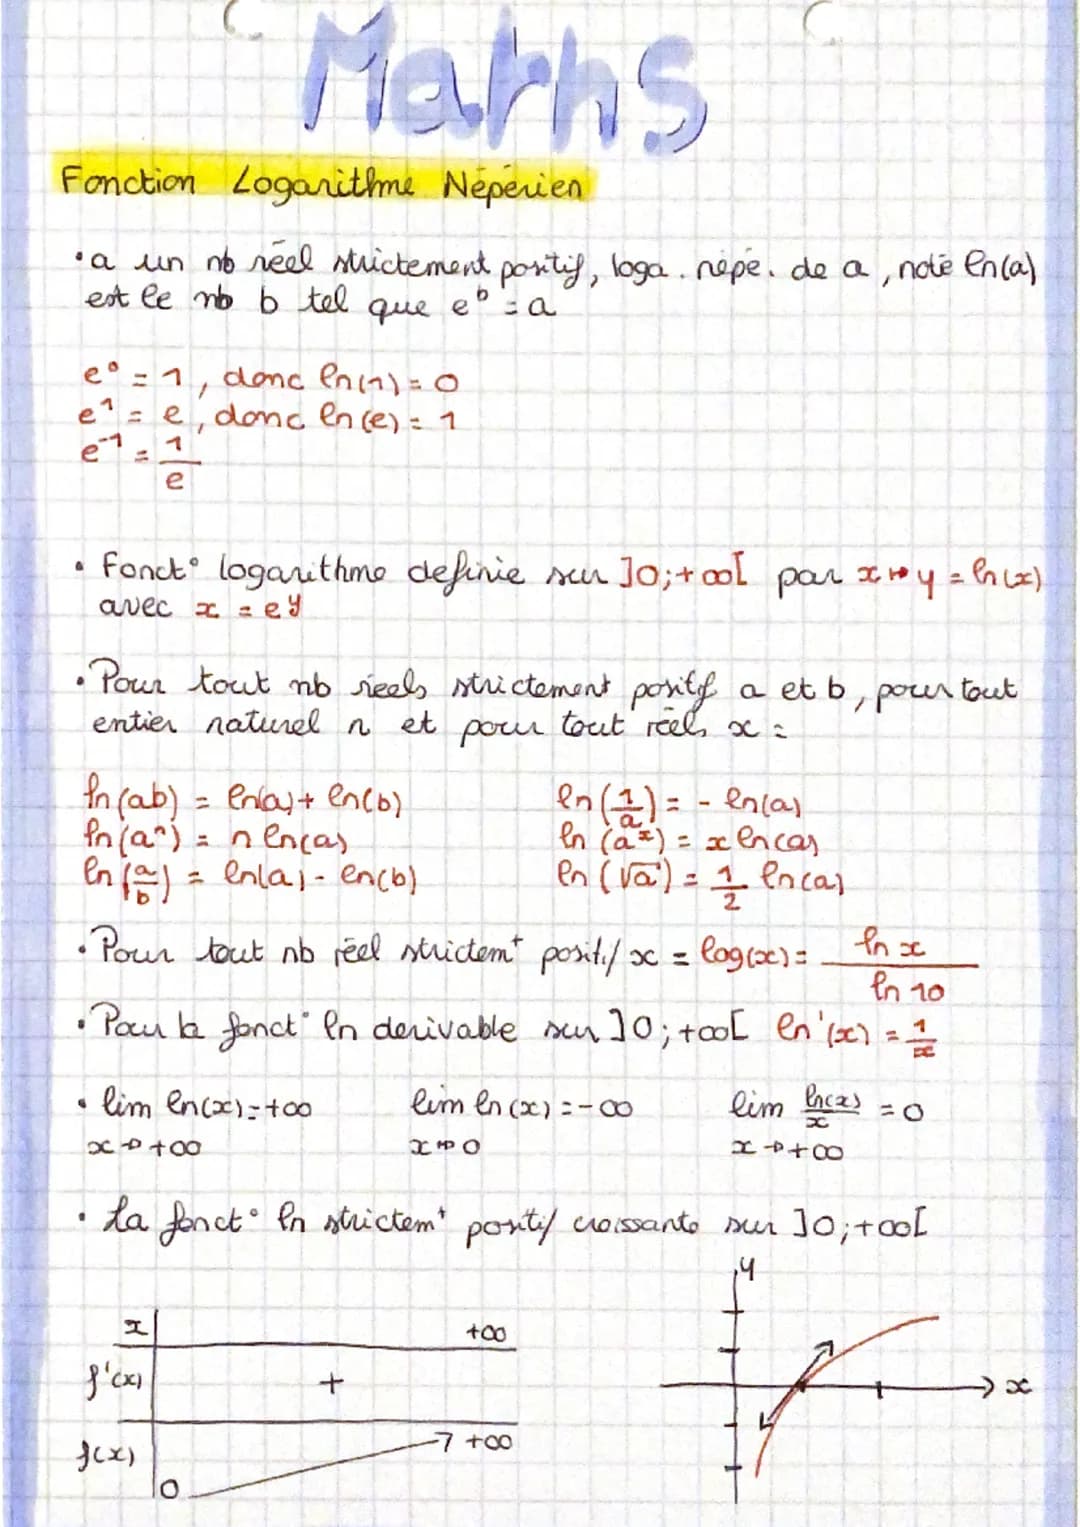 Maths
Fonction Logarithme Népérien
• a un nb réel strictement positif, loga. népé. de a, noté ln(a)
est le nb b tel que e^b = a
e⁰ = 1, donc ln(1) = 0
e¹ = e, donc ln(e) = 1
e⁻¹ = 1/e
• Fonct° logarithme definie sur ]0;+∞[ par x ↦ y = ln(x)
avec x = e^y
• Pour tout nb réels strictement positif a et b, pour tout
entier naturel n et pour tout réels x =
ln(ab) = ln(a) + ln(b) ln(1/a) = - ln(a)
ln(a^n) = n ln(a) ln(a^x) = x ln(a)
ln(a/b) = ln(a) - ln(b) ln(√a) = 1/2 ln(a)
• Pour tout nb réel strictemt positif x = log(x) = ln x / ln 10
• Pour la fonct° ln derivable sur ]0;+∞[ ln'(x) = 1/x
• lim ln(x) = +∞ lim ln(x) = -∞ lim ln(x)/x = 0
x → +∞ x → 0 x → +∞
• La fonct° ln strictemt positif croissante sur ]0;+∞[
y
x +∞
f'(x) +
x
f(x) +∞
0